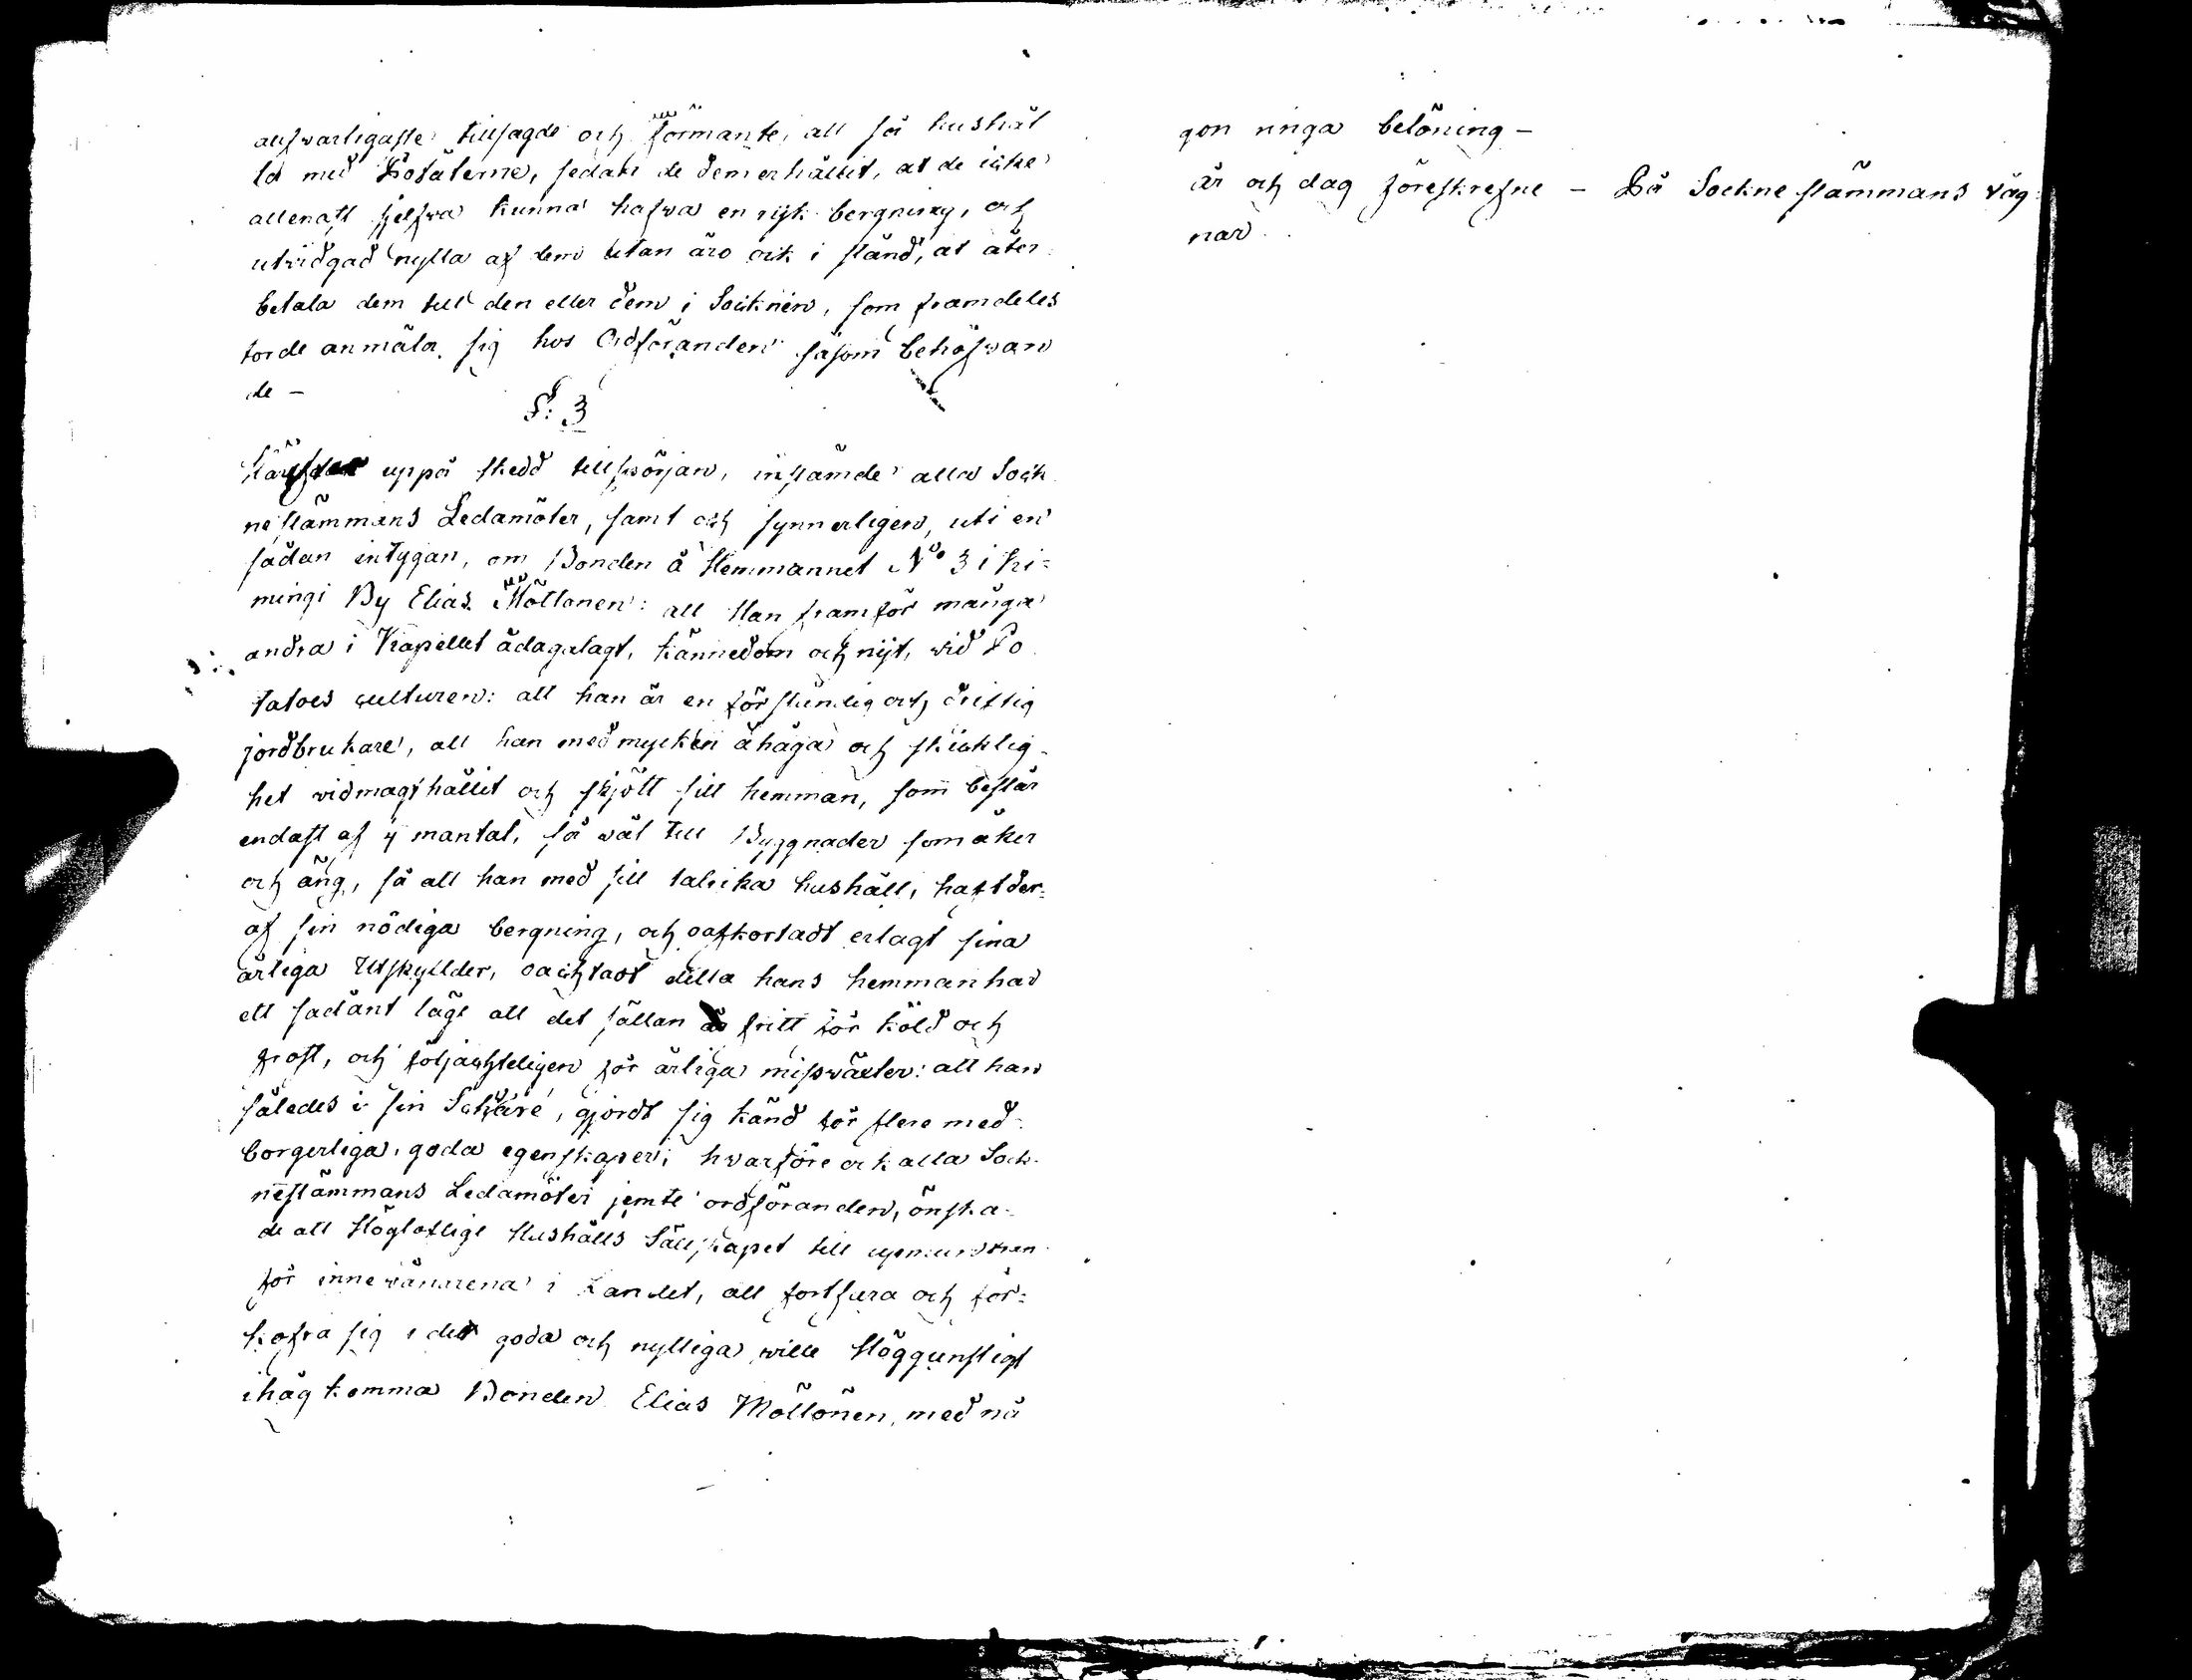 allfwarligaste tillsagde och förmante, att så hushål
la med Potäterne, sedan de dem erhållit, at de icke
allenast sjelfwa kunna hafwa en rijk bergning, och
utvidgad nytta af dem utan äro ock i stånd, at åter
betala dem till den eller dem i Socknen, som framdeles
torde anmäla sig hos Ordföranden såsom behöfwan
de –
§: 3
Härefter uppå skedd tillspörjan, instämde alla Sock
nestämmans Ledamöter, samt och synnerligen, uti en
sådan intygan, om Bonden å Hemmannet No 3 i Ki=
mingi By Elias Möttönen: att Han framför många
andra i Kapellet ådagalagt, kännedom och nijt, wid Po
tatoes culturen: att han är en förståndig och driftig
jordbrukare, att han med mycken åhåga och skicklig-
het widmagthållit och skjött sitt hemman, som består
endast af ¼ mantal, så wäl till Byggnader som åker
och äng, så att han med sitt talrika hushåll, haft der=
af sin nödiga bergning, och oafkortadt erlagt sina
årliga Utskyllder, oachtadt detta hans hemman har
ett sådant läge att det sällan är fritt för köld och
frost, och följachteligen för årliga missväxter: att han
således i sin Sphäre, gjordt sig känd för flere med-
borgerliga, goda egenskaper; hwarföre ock alla Sock-
nestämmans Ledamöter jemte ordföranden, önska-
de att Högloflige Hushålls Sällskapet till upmuntran
för innewånarena i Landet, att fortfara och för=
kofra sig i det goda och nyttiga wille Höggunstigt
ihåg komma Bonden Elias Möttönen, med nå
gon ringa belöning –
år och dag föreskrefne – På Sockne stämmans väg
nar